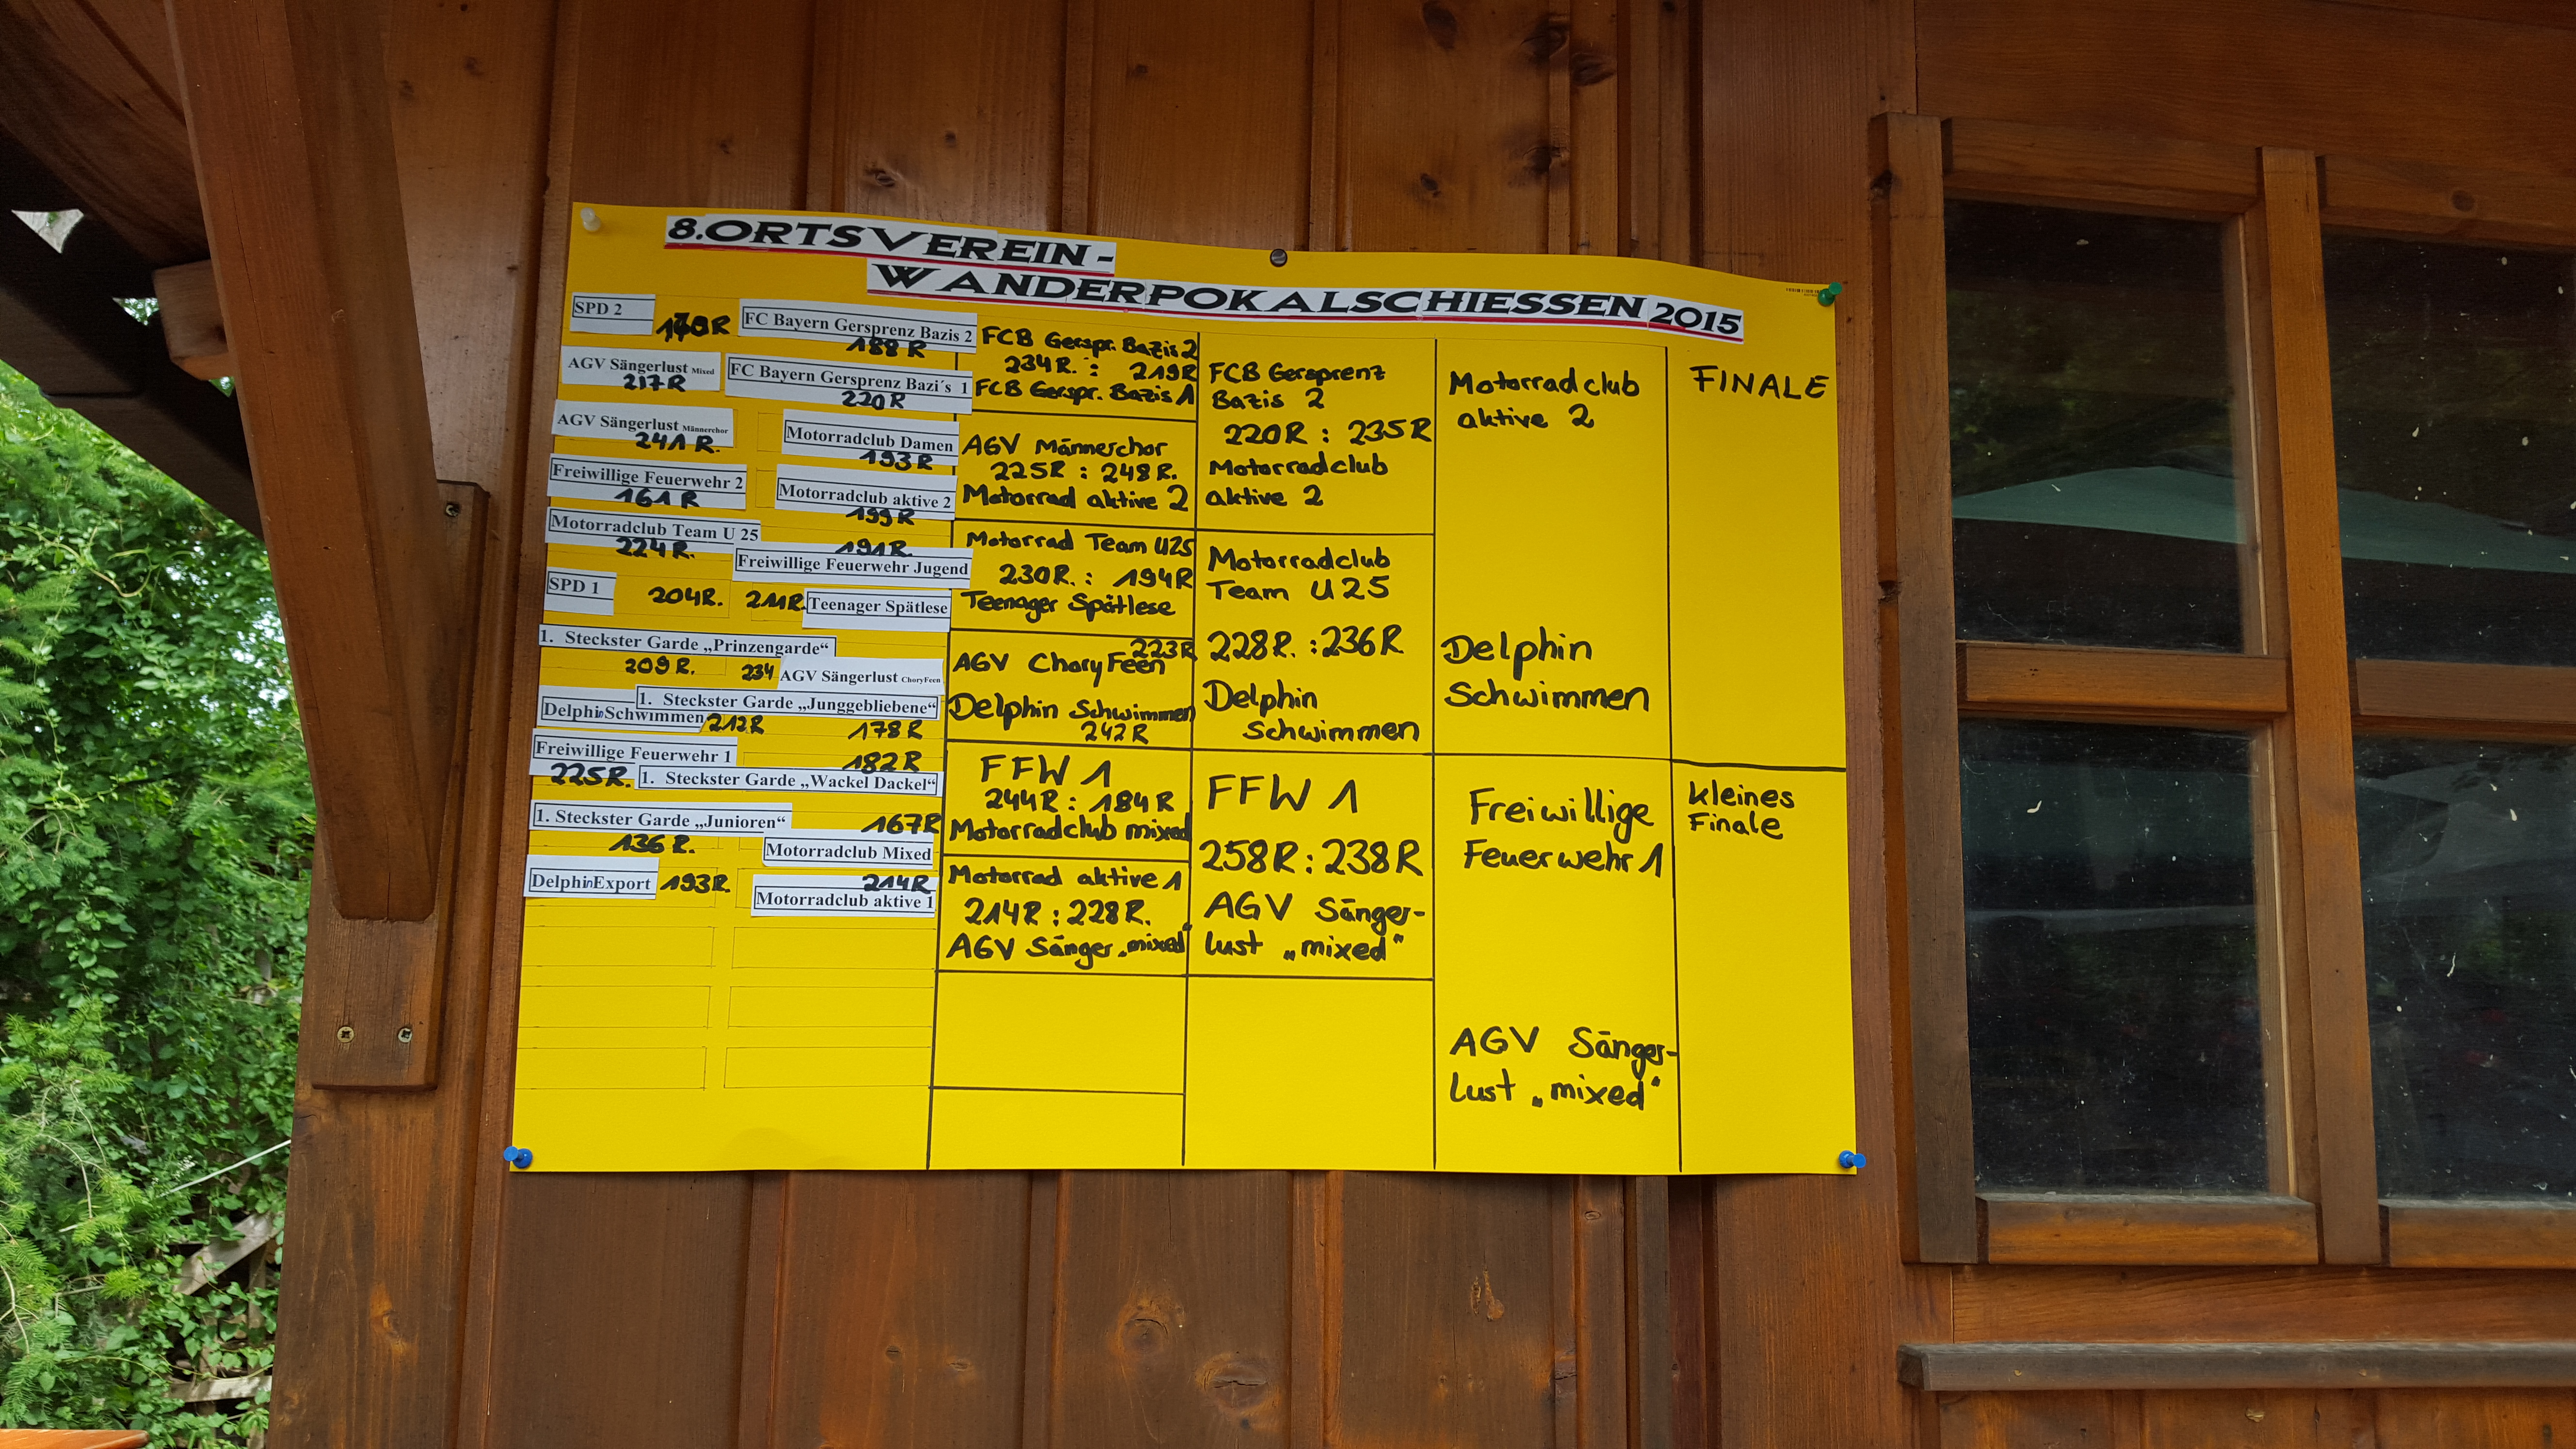 8.ORTSVEREIN -
WANDERPOKALSCHIESSEN 2015
SPD 2
FC Bayern Gersprenz Bazis 2
188 R
AGV Sängerlust Mixed
217 R
FC Bayern Gersprenz Bazi´s 1
220 R
AGV Sängerlust Männerchor
241 R.
Motorradclub Damen
193 R
Freiwillige Feuerwehr 2
161 R
Motorradclub aktive 2
199 R
Motorradclub Team U 25
224 R.
191 R.
Freiwillige Feuerwehr Jugend
SPD 1 204R. 211R. Teenager Spätlese
1. Steckster Garde „Prinzengarde“
209 R. 234 AGV Sängerlust ChoryFeen
1. Steckster Garde „Junggebliebene“
Delphin Schwimmen 212R
178 R
Freiwillige Feuerwehr 1
182 R
225R. 1. Steckster Garde „Wackel Dackel“
1. Steckster Garde „Junioren“ 167R
136 R.
Motorradclub Mixed
Delphin Export 193R.
214R
Motorradclub aktive 1
FCB Gerspr. Bazis 2
234R. : 219R
FCB Gerspr. Bazis 1
AGV Männerchor
225R : 248R.
Motorrad aktive 2
Motorrad Team U25
230R. : 194R
Teenager Spätlese
223R
AGV ChoryFeen
Delphin Schwimmen
242R
FFW 1
244R : 184R
Motorradclub mixed
Motorrad aktive 1
214R : 228R.
AGV Sänger „mixed“
FCB Gersprenz
Bazis 2
220R : 235R
Motorradclub
aktive 2
Motorradclub
Team U25
228R. : 236R
Delphin
Schwimmen
FFW 1
258R : 238R
AGV Sänger-
lust „mixed“
Motorradclub
aktive 2
Delphin
Schwimmen
Freiwillige
Feuerwehr 1
AGV Sänger-
lust „mixed“
FINALE
kleines
Finale